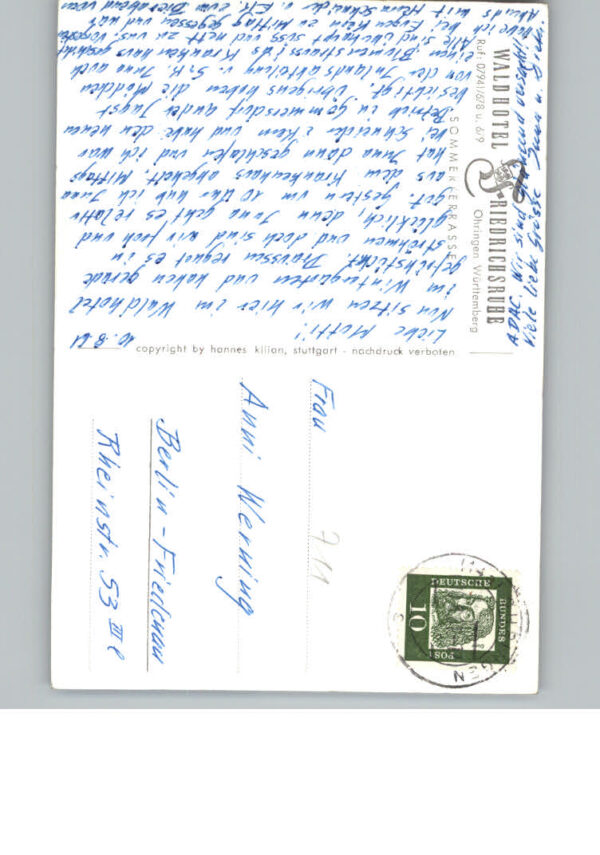 WALDHOTEL
FRIEDRICHSRUHE
Öhringen Württemberg
Ruf: 07941/678 u. 679
SOMMERTERRASSE
10.8.61
Liebe Mutti!
Nun sitzen wir hier im Waldhotel
im Wintergarten und haben gerade
gefrühstückt. Draussen regnet es in
Strömen und doch sind wir froh und
glücklich, denn Inna geht es relativ
gut. Gestern um 10 Uhr hab ich Inna
aus dem Krankenhaus abgeholt. Mittags
hat Inna dann geschlafen und ich war
bei Schneider & Klein und habe den neuen
Betrieb in Gommersdorf an der Jagst
besichtigt. Übrigens haben die Mädchen
von der Inlandsabteilung v. S. K. Inna auch
einen Blumenstrauss ins Krankenhaus geschickt
Alle sind überhaupt süss und nett zu uns.
habe ich bei Eugen Klein zu Mittag gegessen und
Abends mit Herrn Schneider u. E. K. zum Bierabend vom
ADAC. Wir sind
Viele liebe Grüsse Inna u.
copyright by hannes kilian, stuttgart - nachdruck verboten
Frau
Anni Werning
Berlin-Friedenau
Rheinstr. 53 III l
711
DEUTSCHE
BUNDES
POST
10